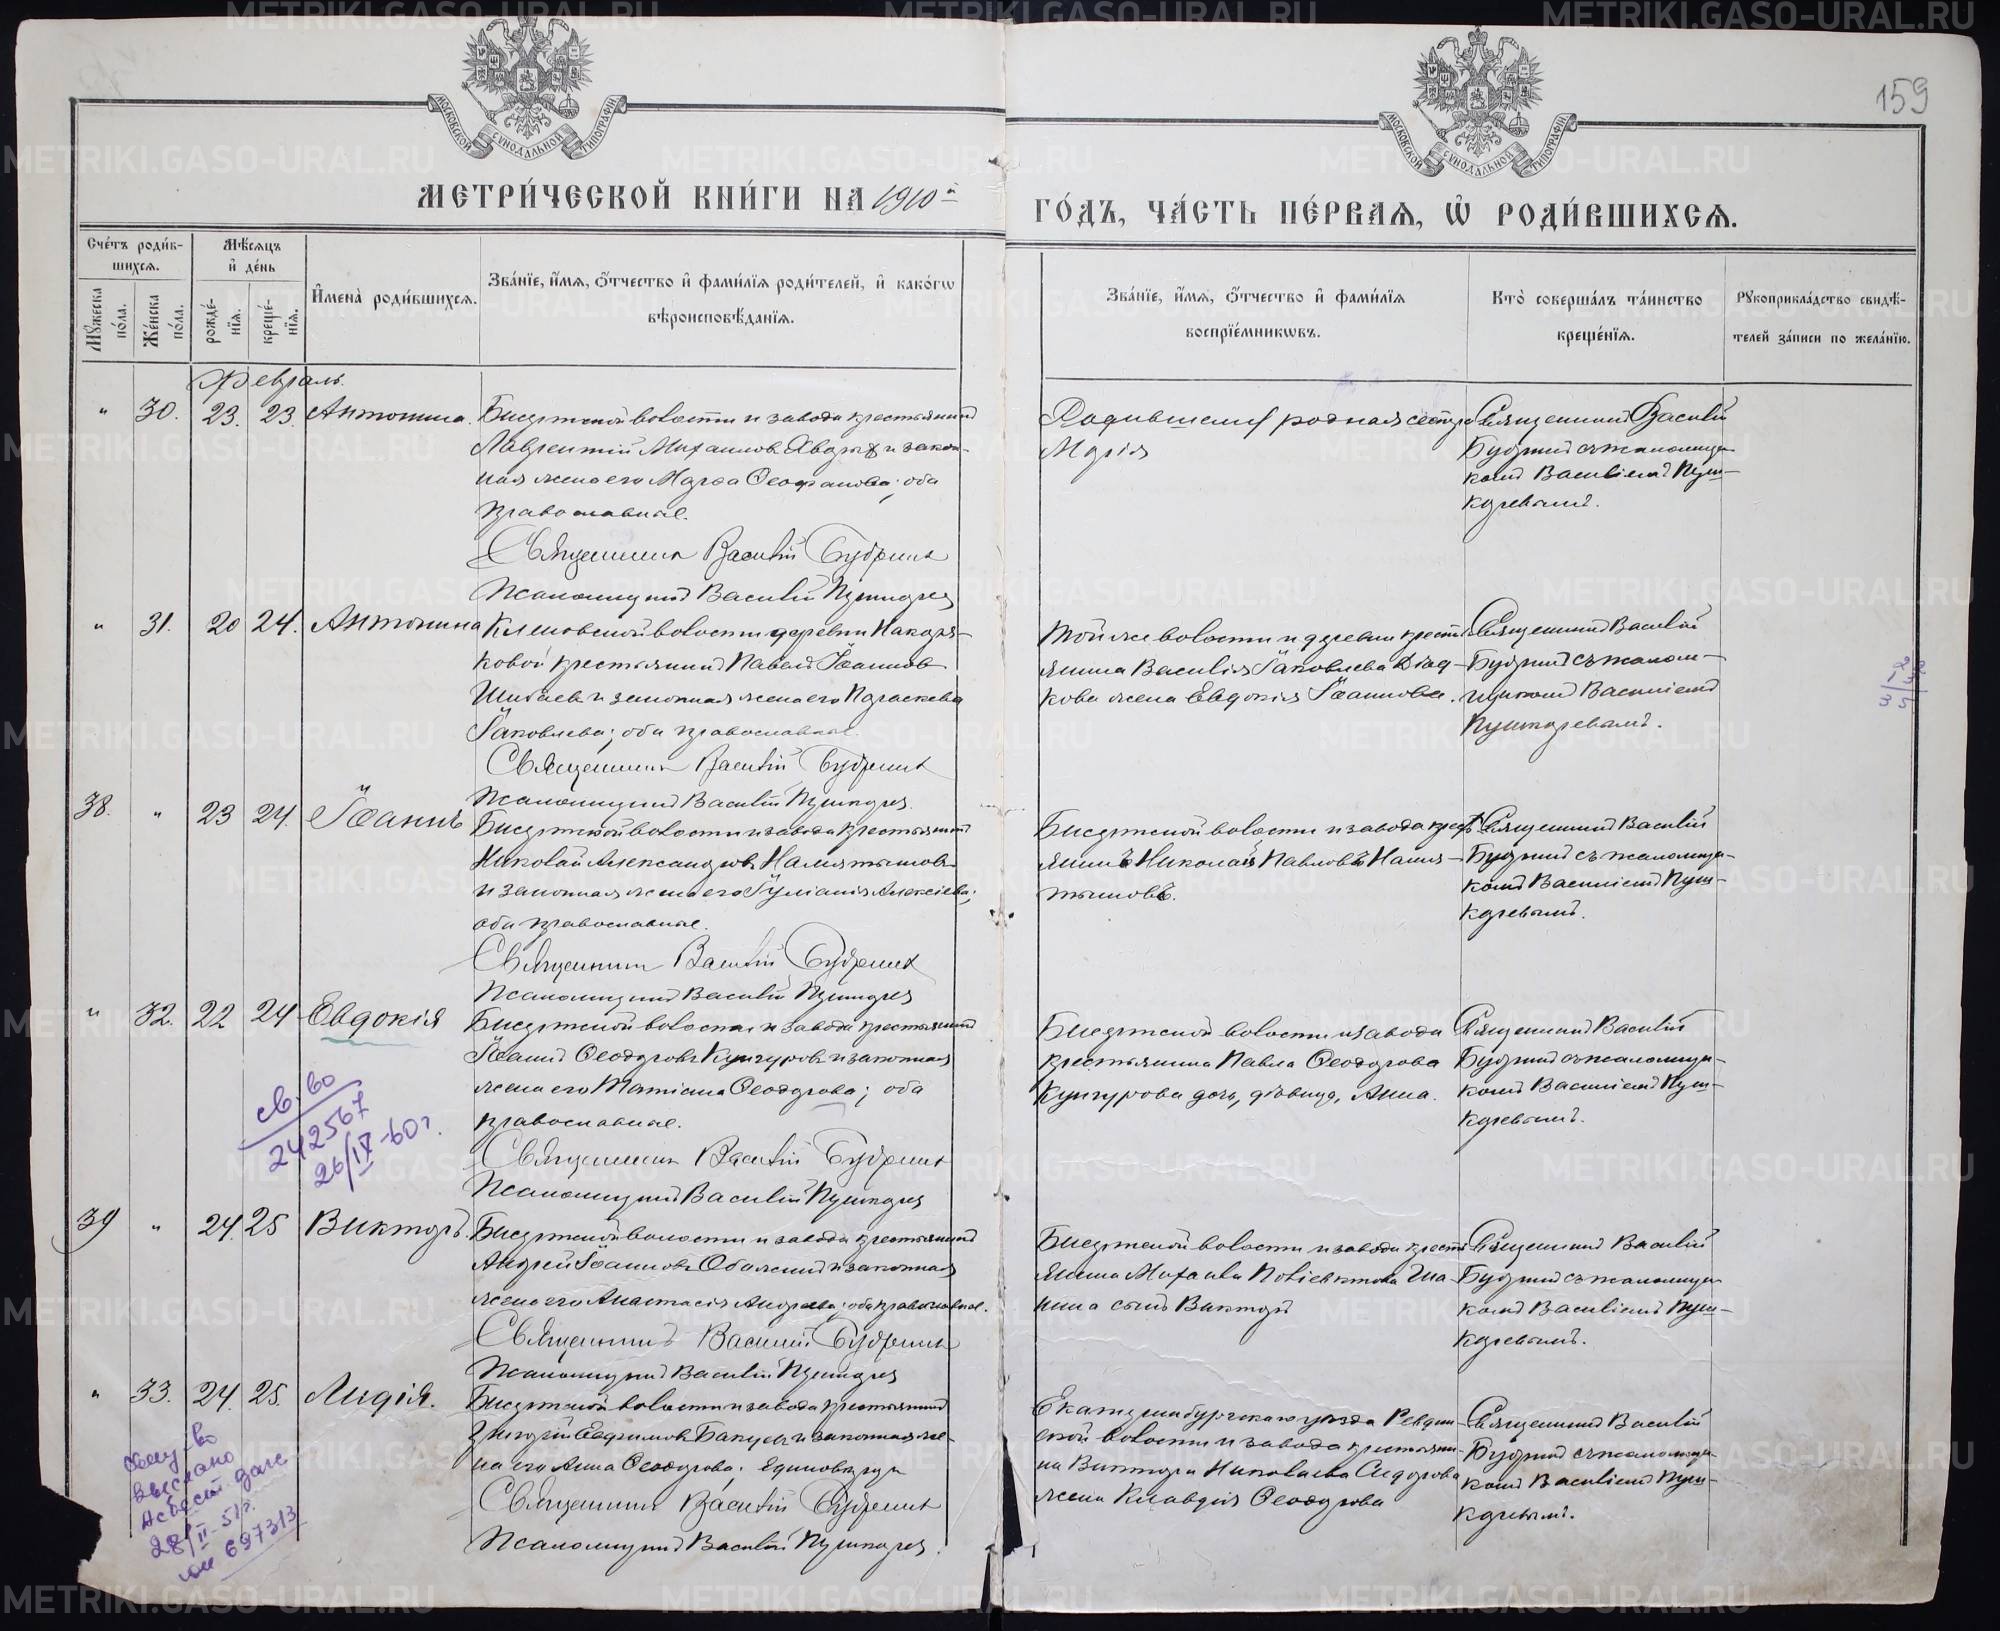 159
МОСКОВСКОЙ СѴНОДАЛЬНОЙ ТИПОГРАФІИ
МОСКОВСКОЙ СѴНОДАЛЬНОЙ ТИПОГРАФІИ
МЕТРИ́ЧЕСКОЙ КНИ́ГИ НА 1910й
ГО́ДЪ, ЧА́СТЬ ПЕ́РВАЯ, Ѡ҆ РОДИ́ВШИХСЯ.
Сче́тъ роди́в-
шихся.
Мѣ́сяцъ
и҆ де́нь
Му́жеска по́ла.
Же́нска по́ла.
рожде́-нїя.
креще́-нїя.
И҆мена̀ роди́вшихся.
Зва́нїе, и҆́мя, ѻ҆́тчество и҆ фами́лїя роди́телей, и҆ како́гѡ
вѣроисповѣ́данїя.
Зва́нїе, и҆́мя, ѻ҆́тчество и҆ фами́лїя
воспрїе́мникѡвъ.
Кто̀ соверша́лъ та́инство
креще́нїя.
Рꙋкоприкла́дство свидѣ́-
телей за́писи по жела́нїю.
Февраль.
" 30. 23. 23. Антонина.
Бисертской волости и завода крестьянинъ
Лаврентій Михаиловъ и закон-
ная жена его Марѳа Ѳеофанова; оба
православные.
Священникъ Василій Будринъ
Псаломщикъ Василій Пушкарев
Родившейся родная сестра
Марія
Священникъ Василій
Будринъ съ псаломщи-
комъ Василіемъ Пуш-
каревымъ.
" 31. 20 24. Антонина
Кленовской волости деревни Накоря-
ковой крестьянинъ Павелъ Іоаннов
Шибаевъ и законная жена его Параскева
Іаковлева; оба православные.
Священникъ Василій Будринъ
Псаломщикъ Василій Пушкарев.
Той же волости и деревни кресть-
янина Василія Іаковлева Дъяч-
кова жена Евдокія Іоаннова.
Священникъ Василій
Будринъ съ псалом-
щикомъ Василіемъ
Пушкаревымъ.
38. " 23 24. Іоаннъ
Бисертской волости и завода крестьянинъ
Николай Александровъ Намятышовъ
и законная жена его Іуліанія Алексіева;
оба православные.
Священникъ Василій Будринъ
Псаломщикъ Василій Пушкарев
Бисертской волости и завода крест-
янинъ Николай Павловъ Намя-
тышовъ.
Священникъ Василій
Будринъ съ псаломщи-
комъ Василіемъ Пуш-
каревымъ.
" 32. 22 24 Евдокія
Бисертской волости и завода крестьянинъ
Іоаннъ Ѳеодоровъ Кунгуровъ и законная
жена его Татіана Ѳеодорова; оба
православные.
Священникъ Василій Будринъ
Псаломщикъ Василій Пушкарев
Бисертской волости и завода
крестьянина Павла Ѳеодорова
Кунгурова дочь, дѣвица, Анна.
Священникъ Василій
Будринъ съ псаломщи-
комъ Василіемъ Пуш-
каревымъ.
св-во
242567
26/IX-60г.
39 " 24. 25 Викторъ.
Бисертской волости и завода крестьянинъ
Андрей Іоанновъ и законная
жена его Анастасія Андреева; оба православные.
Священникъ Василій Будринъ
Псаломщикъ Василій Пушкарев
Бисертской волости и завода кресть-
янина Михаила Поліевктова Ша-
нина сынъ Викторъ
Священникъ Василій
Будринъ съ псаломщи-
комъ Василіемъ Пуш-
каревымъ.
" 33. 24. 25. Лидія.
Бисертской волости и завода крестьянинъ
Григорій Евфимовъ и законная же-
на его Анна Ѳеодорова; единоверцы
Священникъ Василій Будринъ
Псаломщикъ Василій Пушкарев.
Екатеринбургскаго уѣзда Ревдин-
ской волости и завода крестьяни-
на Виктора Николаева Сидорова
жена Клавдія Ѳеодорова
Священникъ Василій
Будринъ съ псаломщи-
комъ Василіемъ Пуш-
каревымъ.
выслано
28/II-51г.
697313
METRIKI.GASO-URAL.RU